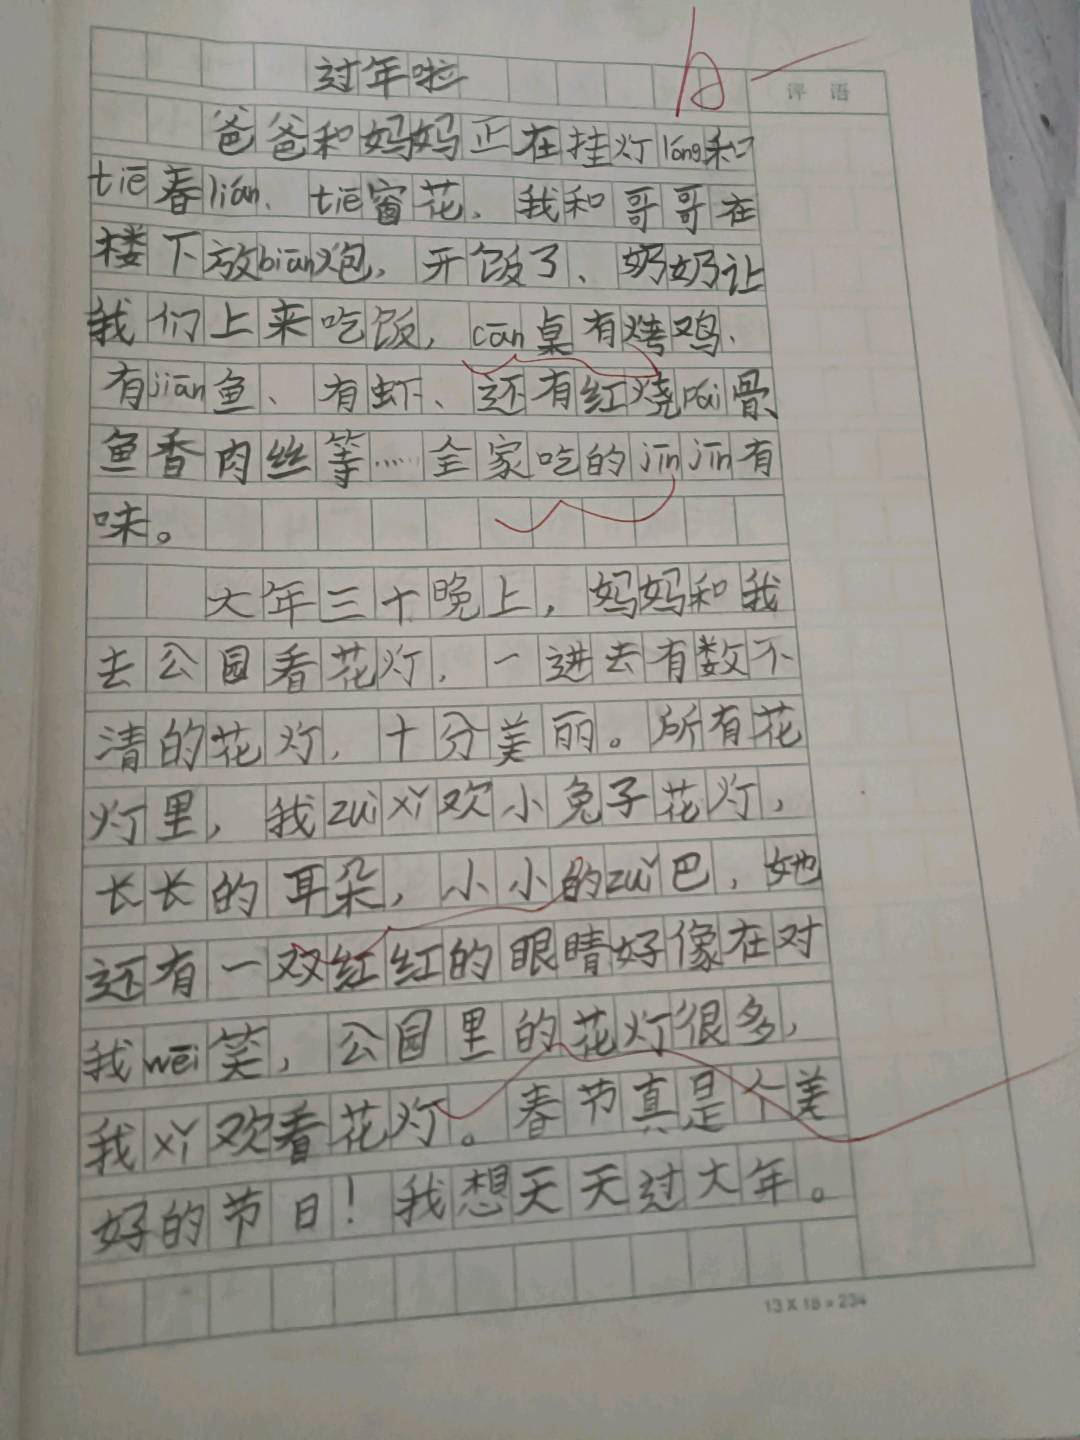 过年啦
评 语
爸爸和妈妈正在挂灯lóng和
tiē春lián、tiē窗花，我和哥哥在
楼下放biān炮，开饭了、奶奶让
我们上来吃饭，cān桌有烤鸡、
有jiān鱼、有虾、还有红烧pái骨、
鱼香肉丝等……全家吃的jīn jīn有
味。
大年三十晚上，妈妈和我
去公园看花灯，一进去有数不
清的花灯，十分美丽。所有花
灯里，我zuì xǐ欢小兔子花灯，
长长的耳朵，小小的zuǐ巴，她
还有一双红红的眼睛好像在对
我wēi笑，公园里的花灯很多，
我xǐ欢看花灯。春节真是个美
好的节日！我想天天过大年。
13 X 18 = 234